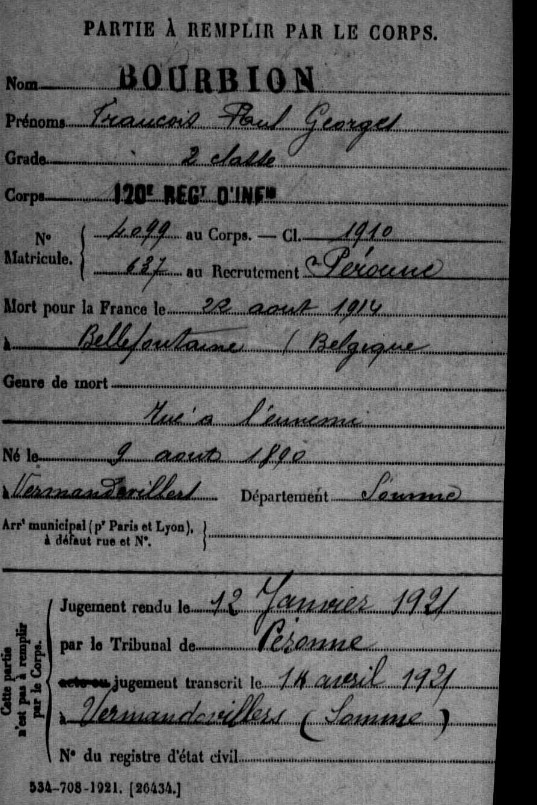 PARTIE À REMPLIR PAR LE CORPS.
Nom BOURBION
Prénoms Francois Paul Georges
Grade 2 classe
Corps 120E REGT D'INFIE
N° Matricule. { 4099 au Corps. — Cl. 1910
637 au Recrutement Péronne
Mort pour la France le 22 aout 1914
à Bellefontaine (Belgique
Genre de mort
tué à l'ennemi
Né le 9 aout 1890
à Vermandovillers Département Somme
Arrt municipal (pr Paris et Lyon),
à défaut rue et N°.
Cette partie n'est pas à remplir par le Corps.
Jugement rendu le 12 Janvier 1921
par le Tribunal de Péronne
acte ou jugement transcrit le 14 avril 1921
à Vermandovillers (Somme)
N° du registre d'état civil
534-708-1921. [26434.]